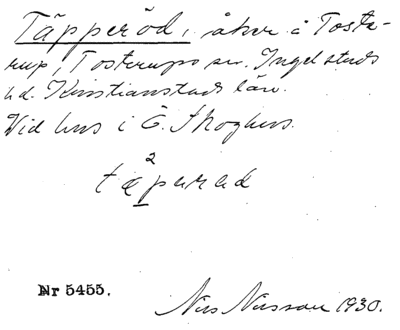 Täpperöd, åker i Tosta-
rup, Tosterups sn. Ingelstads
hd. Kristianstads län.
Vid hus i Ö. Skoghus.
2
tæperad
Nr 5455.
Nils Nilsson 1930.